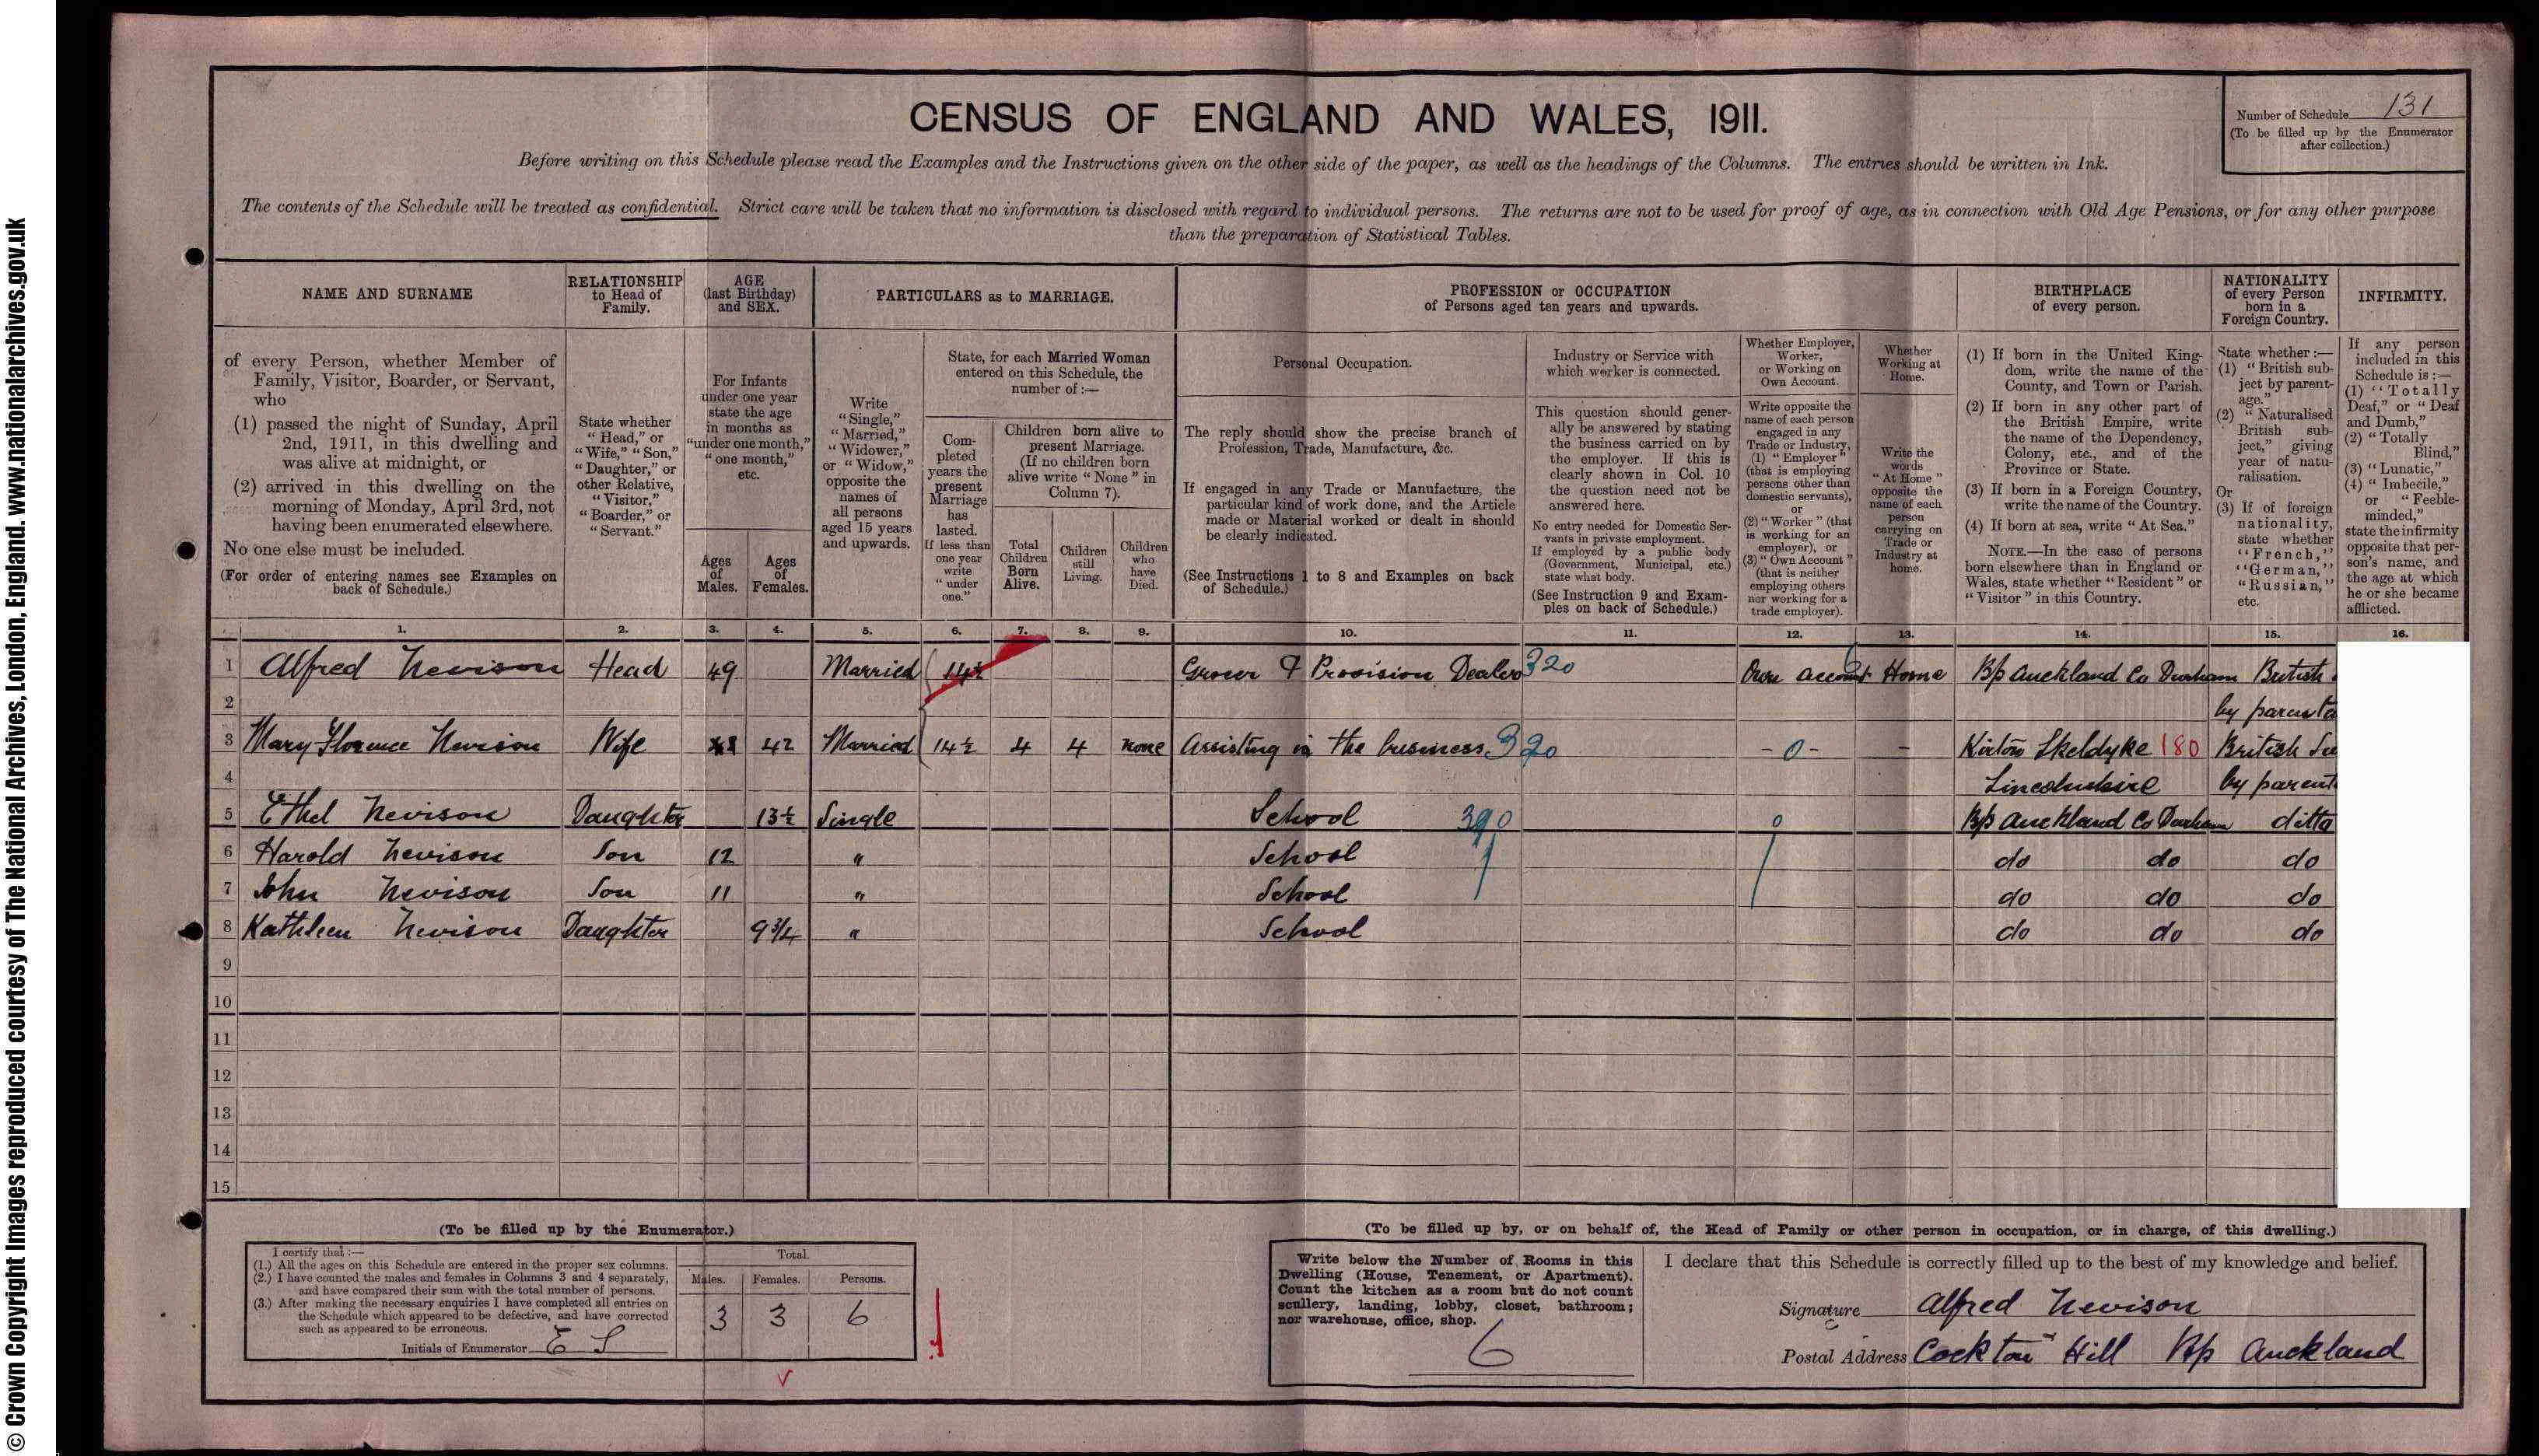 © Crown Copyright Images reproduced courtesy of The National Archives, London, England. www.nationalarchives.gov.uk
CENSUS OF ENGLAND AND WALES, 1911.
Number of Schedule 131
(To be filled up by the Enumerator
after collection.)
Before writing on this Schedule please read the Examples and the Instructions given on the other side of the paper, as well as the headings of the Columns. The entries should be written in Ink.
The contents of the Schedule will be treated as confidential. Strict care will be taken that no information is disclosed with regard to individual persons. The returns are not to be used for proof of age, as in connection with Old Age Pensions, or for any other purpose
than the preparation of Statistical Tables.
NAME AND SURNAME
of every Person, whether Member of
Family, Visitor, Boarder, or Servant,
who
(1) passed the night of Sunday, April
2nd, 1911, in this dwelling and
was alive at midnight, or
(2) arrived in this dwelling on the
morning of Monday, April 3rd, not
having been enumerated elsewhere.
No one else must be included.
(For order of entering names see Examples on
back of Schedule.)
RELATIONSHIP
to Head of
Family.
State whether
"Head," or
"Wife," "Son,"
"Daughter," or
other Relative,
"Visitor,"
"Boarder," or
"Servant."
AGE
(last Birthday)
and SEX.
For Infants
under one year
state the age
in months as
"under one month,"
"one month,"
etc.
Ages
of
Males.
Ages
of
Females.
PARTICULARS as to MARRIAGE.
Write
"Single,"
"Married,"
"Widower,"
or "Widow,"
opposite the
names of
all persons
aged 15 years
and upwards.
State, for each Married Woman
entered on this Schedule, the
number of :—
Com-
pleted
years the
present
Marriage
has
lasted.
If less than
one year
write
"under
one."
Children born alive to
present Marriage.
(If no children born
alive write "None" in
Column 7).
Total
Children
Born
Alive.
Children
still
Living.
Children
who
have
Died.
PROFESSION or OCCUPATION
of Persons aged ten years and upwards.
Personal Occupation.
The reply should show the precise branch of
Profession, Trade, Manufacture, &c.
If engaged in any Trade or Manufacture, the
particular kind of work done, and the Article
made or Material worked or dealt in should
be clearly indicated.
(See Instructions 1 to 8 and Examples on back
of Schedule.)
Industry or Service with
which worker is connected.
This question should gener-
ally be answered by stating
the business carried on by
the employer. If this is
clearly shown in Col. 10
the question need not be
answered here.
No entry needed for Domestic Ser-
vants in private employment.
If employed by a public body
(Government, Municipal, etc.)
state what body.
(See Instruction 9 and Exam-
ples on back of Schedule.)
Whether Employer,
Worker,
or Working on
Own Account.
Write opposite the
name of each person
engaged in any
Trade or Industry,
(1) "Employer"
(that is employing
persons other than
domestic servants),
or
(2) "Worker" (that
is working for an
employer), or
(3) "Own Account"
(that is neither
employing others
nor working for a
trade employer).
Whether
Working at
Home.
Write the
words
"At Home"
opposite the
name of each
person
carrying on
Trade or
Industry at
home.
BIRTHPLACE
of every person.
(1) If born in the United King-
dom, write the name of the
County, and Town or Parish.
(2) If born in any other part of
the British Empire, write
the name of the Dependency,
Colony, etc., and of the
Province or State.
(3) If born in a Foreign Country,
write the name of the Country.
(4) If born at sea, write "At Sea."
NOTE.—In the case of persons
born elsewhere than in England or
Wales, state whether "Resident" or
"Visitor" in this Country.
NATIONALITY
of every Person
born in a
Foreign Country.
State whether :—
(1) "British sub-
ject by parent-
age."
(2) "Naturalised
British sub-
ject," giving
year of natu-
ralisation.
Or
(3) If of foreign
nationality,
state whether
"French,"
"German,"
"Russian,"
etc.
INFIRMITY.
If any person
included in this
Schedule is :—
(1) "Totally
Deaf," or "Deaf
and Dumb,"
(2) "Totally
Blind,"
(3) "Lunatic,"
(4) "Imbecile,"
or "Feeble-
minded,"
state the infirmity
opposite that per-
son's name, and
the age at which
he or she became
afflicted.
1. 2. 3. 4. 5. 6. 7. 8. 9. 10. 11. 12. 13. 14. 15. 16.
1 Alfred Nevison Head 49 Married 14½ Grocer & Provision Dealer 320 Own account Home Bp Auckland Co Durham British
2 by parenta
3 Mary Florence Nevison Wife 42 Married 14½ 4 4 none Assisting in the business 320 - 0 - - Kirton Skeldyke 180 British Su
4 Lincolnshire by parent
5 Ethel Nevison Daughter 13½ Single School 390 0 Bp Auckland Co Durham ditto
6 Harold Nevison Son 12 " School do do do
7 John Nevison Son 11 " School do do do
8 Kathleen Nevison Daughter 9¾ " School do do do
9
10
11
12
13
14
15
(To be filled up by the Enumerator.)
I certify that :—
(1.) All the ages on this Schedule are entered in the proper sex columns.
(2.) I have counted the males and females in Columns 3 and 4 separately,
and have compared their sum with the total number of persons.
(3.) After making the necessary enquiries I have completed all entries on
the Schedule which appeared to be defective, and have corrected
such as appeared to be erroneous.
Initials of Enumerator E S
Total.
Males. Females. Persons.
3 3 6
(To be filled up by, or on behalf of, the Head of Family or other person in occupation, or in charge, of this dwelling.)
Write below the Number of Rooms in this
Dwelling (House, Tenement, or Apartment).
Count the kitchen as a room but do not count
scullery, landing, lobby, closet, bathroom;
nor warehouse, office, shop.
6
I declare that this Schedule is correctly filled up to the best of my knowledge and belief.
Signature Alfred Nevison
Postal Address Cockton Hill Bp Auckland